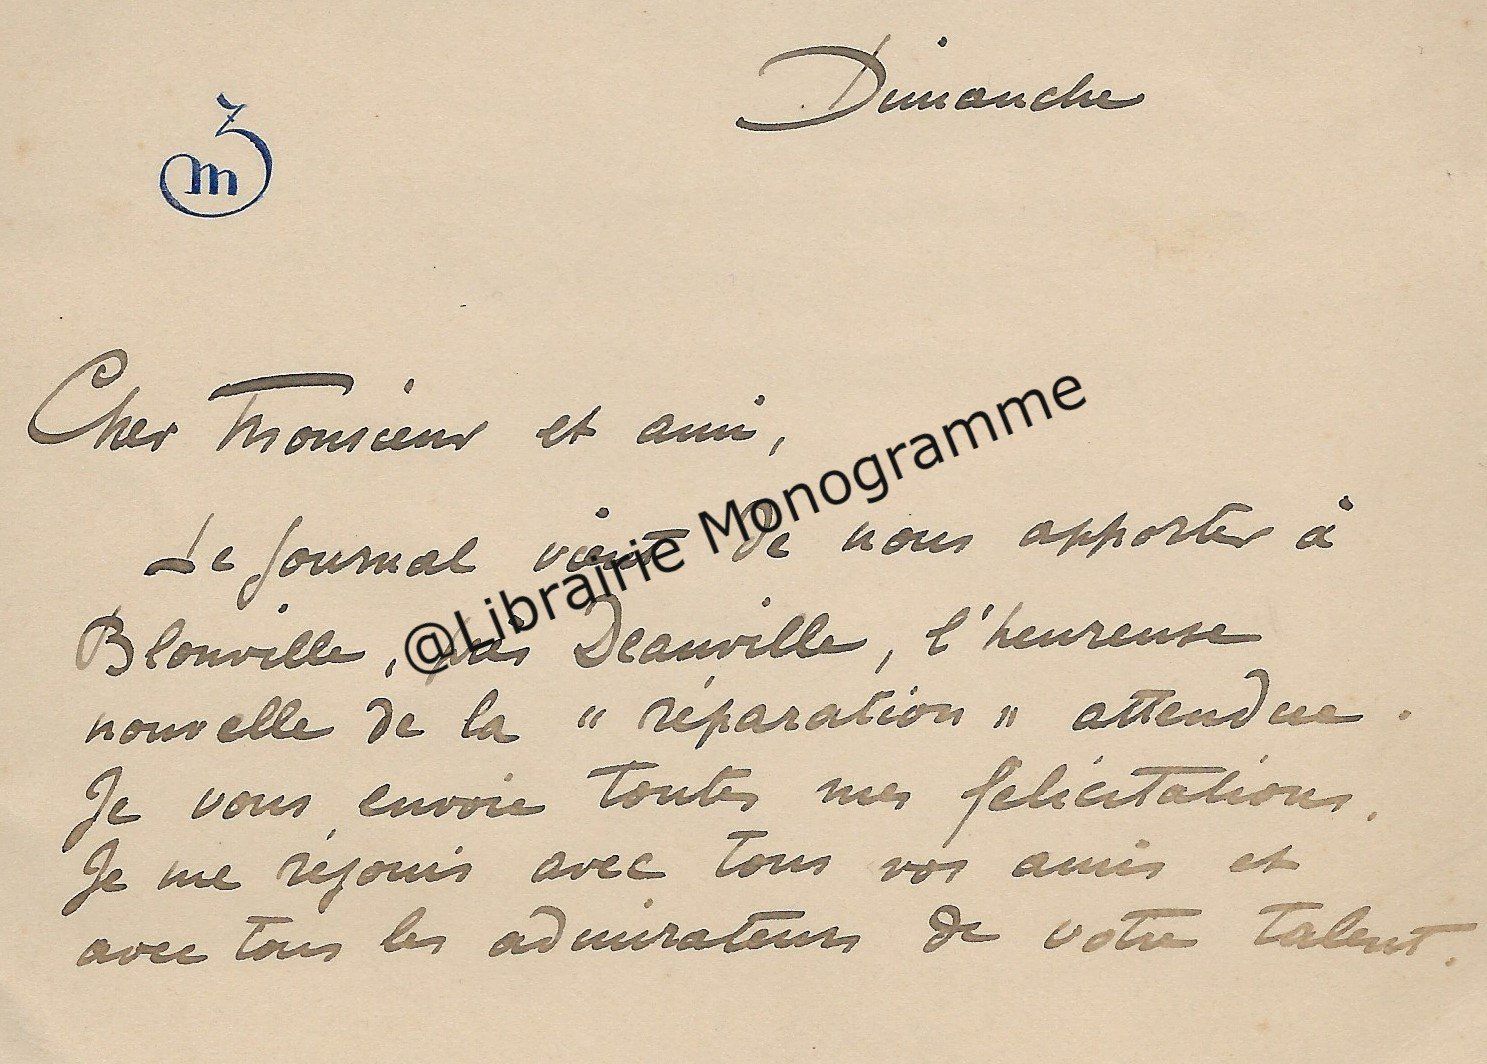 Dimanche
m
Cher Monsieur et ami,
Le Journal vient de nous apporter à
Blonville, près Deauville, l'heureuse
nouvelle de la " réparation " attendue.
Je vous envoie toutes mes félicitations.
Je me réjouis avec tous vos amis et
avec tous les admirateurs de votre talent.
@Librairie Monogramme